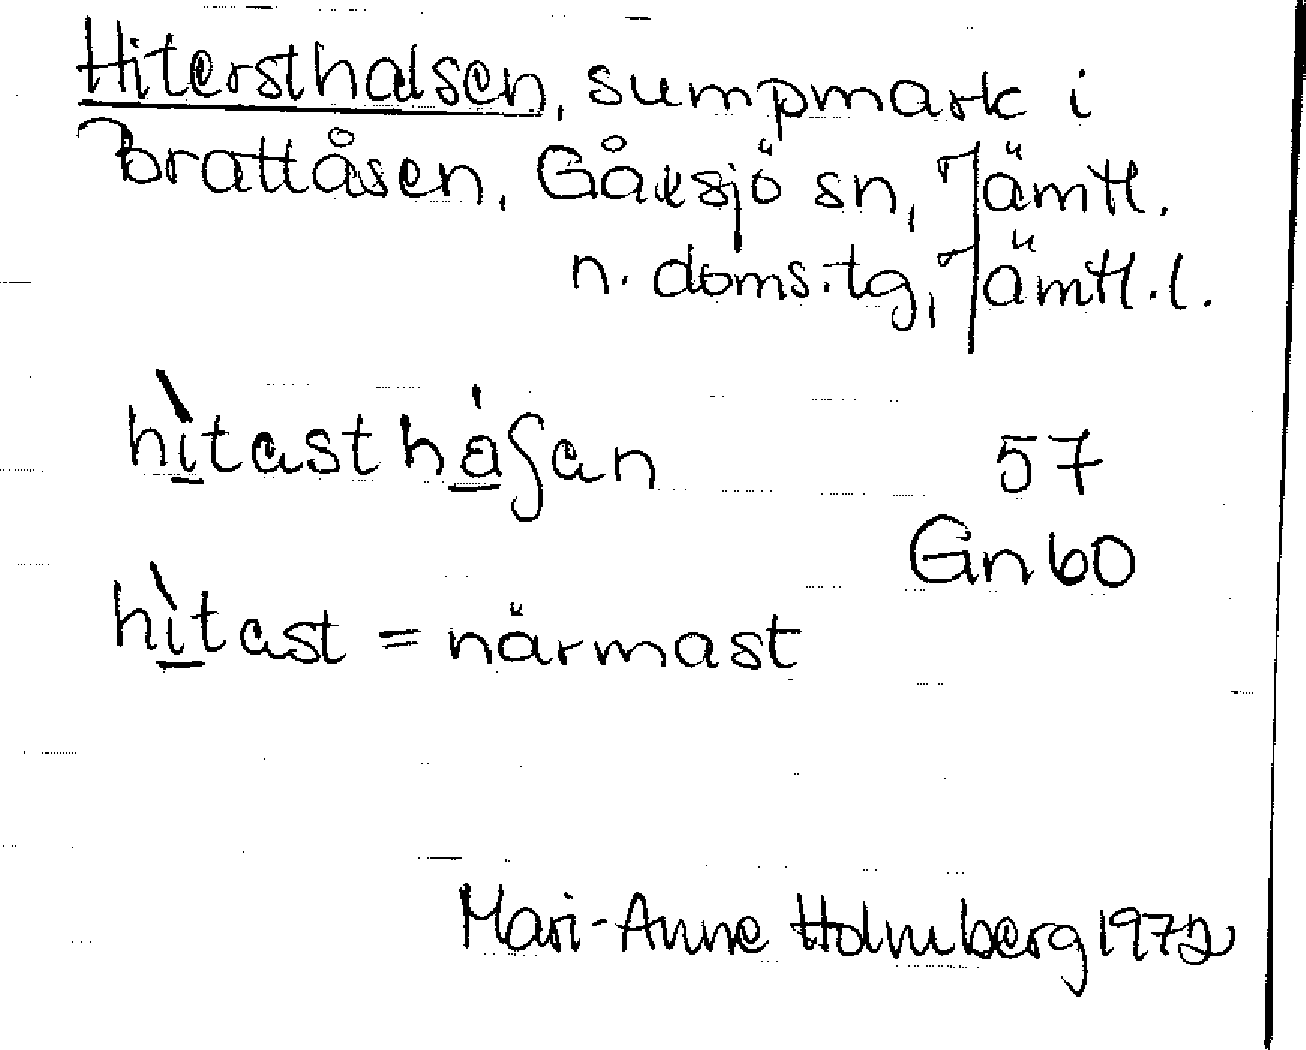 Hitersthalsen, sumpmark i
Brattåsen, Gåxsjö sn, Jämtl.
n. doms. tg, Jämtl. l.
hìtasthá̱ʃan
57
Gn 60
hìtast = närmast
Mari-Anne Holmberg 1972